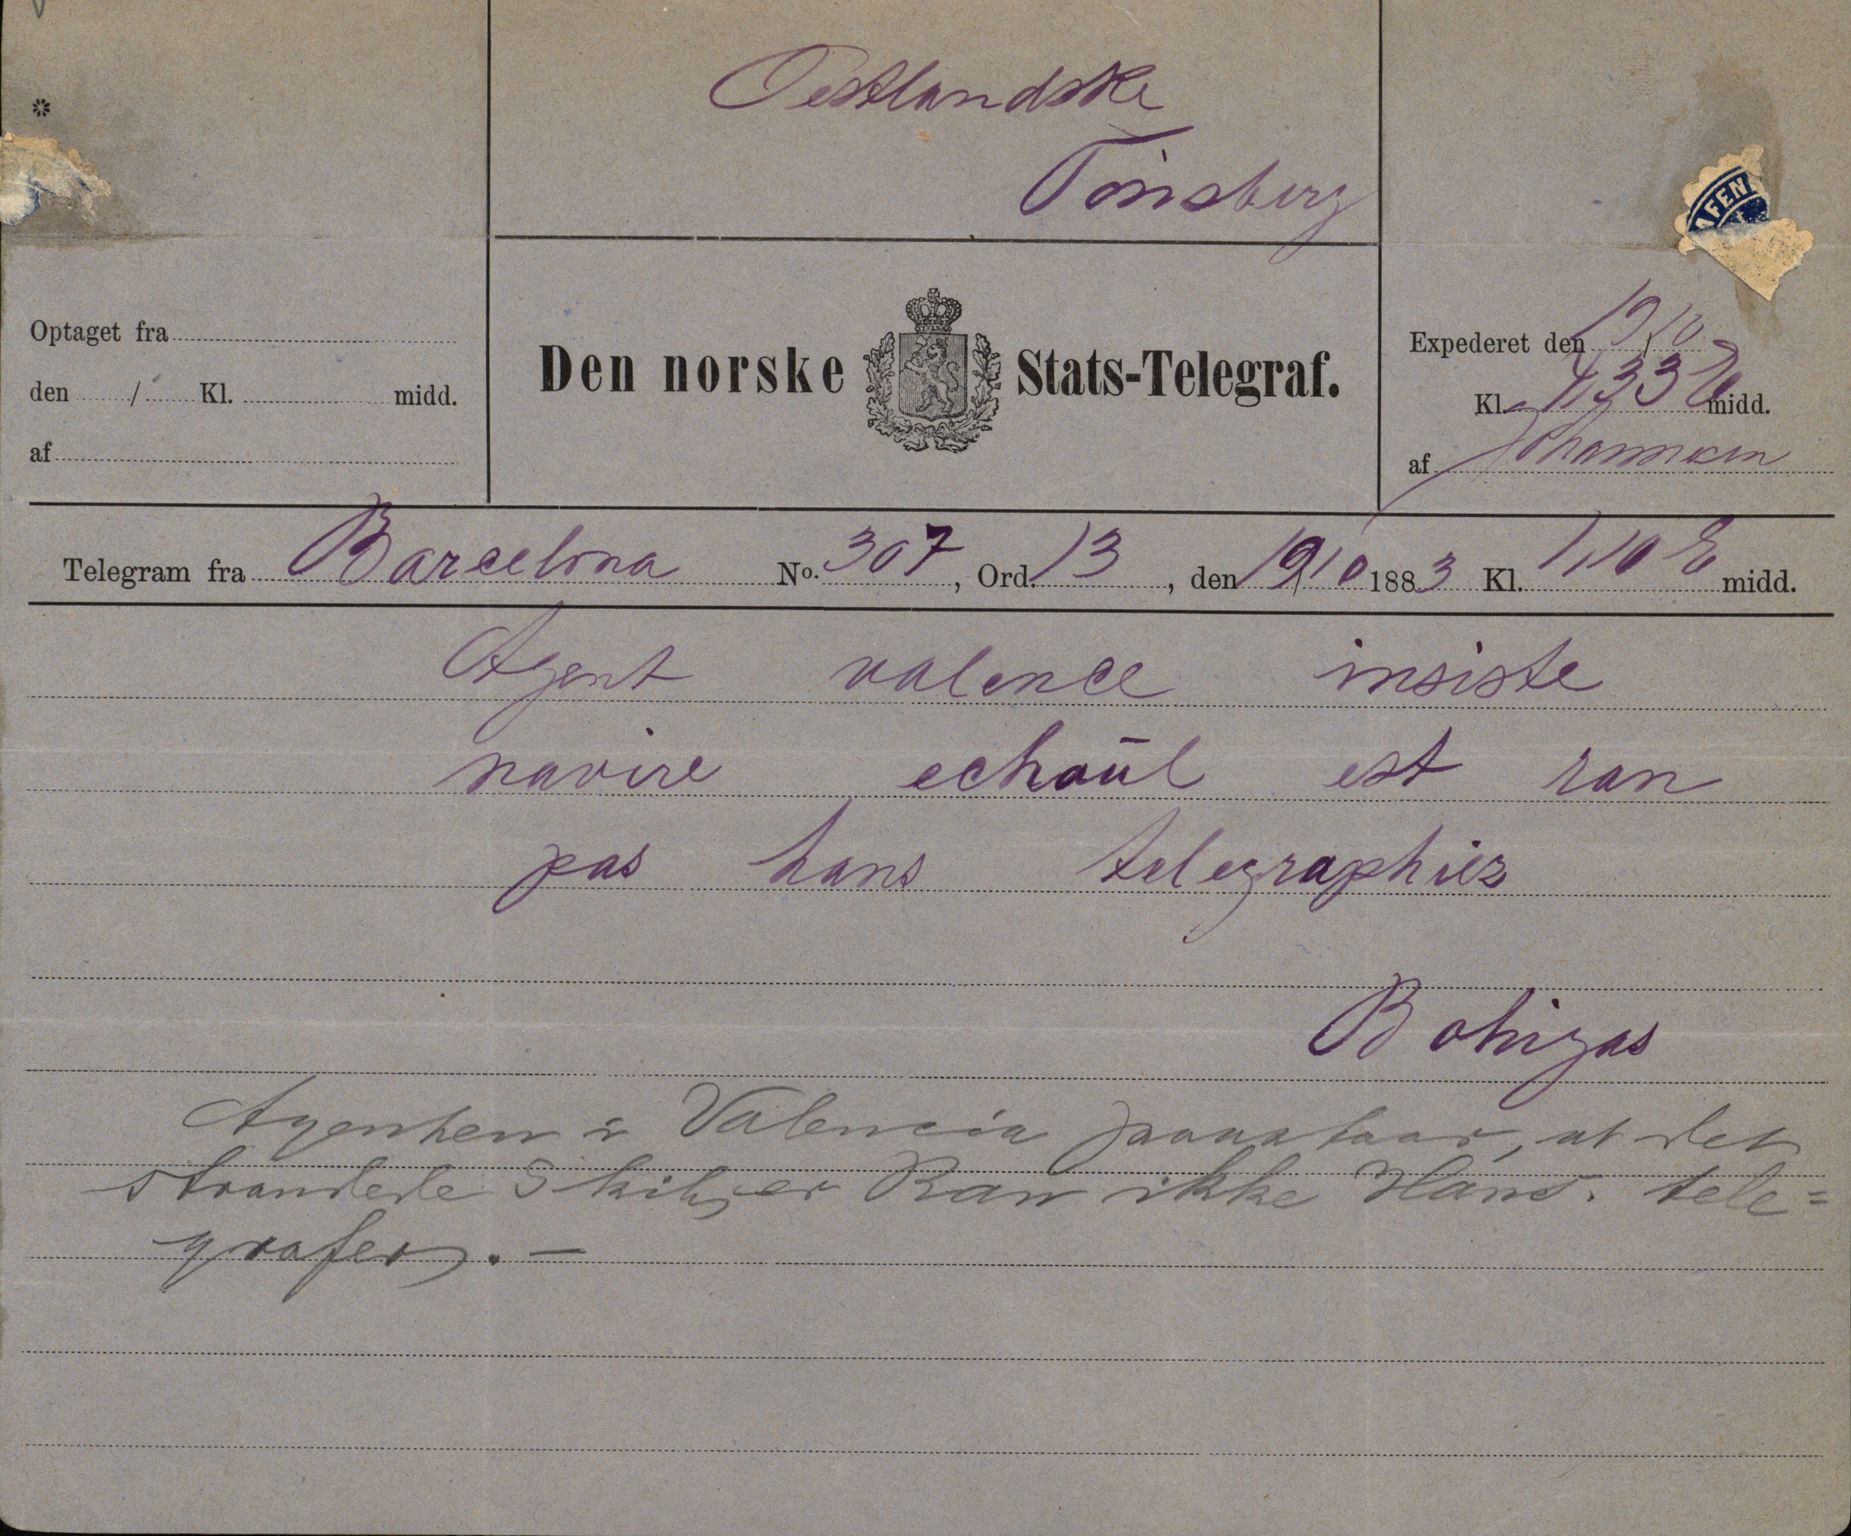 *
Oestlandske
Tönsberg
AFEN
Optaget fra
den / Kl. midd.
af
Den norske Stats-Telegraf.
Expederet den 19/10
Kl. 4,33 E midd.
af Johannesen
Telegram fra Barcelona No. 307, Ord. 13, den 19/10 1883 Kl. 1,10 E midd.
Agent valence insiste
navire echoūl est ran
pas hans telegraphiez
Bohigas
Agenten i Valencia paastaar, at det
strandede Skib er Ran ikke Hans. tele=
grafer. —